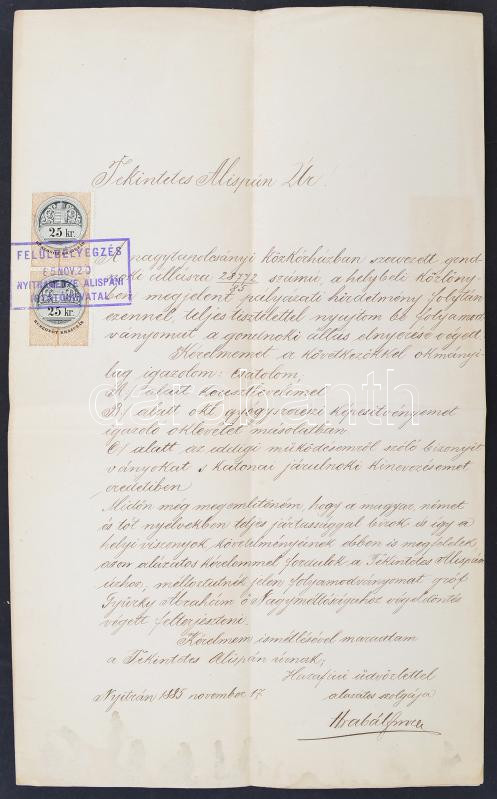 Tekintetes Alispán Úr!
25 kr.
FELÜLBÉLYEGZÉS
85 NOV. 20
NYITRAMEGYE ALISPÁNI
25 kr.
A nagytapolcsányi közkórházban szervezett gond-
noki állásra 28772/85 számú, a helybeli közlöny-
ben megjelent pályázati hirdetmény folytán
ezennel, teljes tisztelettel nyujtom be folyamod-
ványomat a gondnoki állás elnyerése végett.
Kérelmemet a következőkkel okmányi-
lag igazolom: csatolom,
A/ alatt keresztlevelemet
B/ alatt okl. gyógyszerészi képesítvényemet
igazoló oklevelet másolatban
C/ alatt az eddigi működésemről szóló bizonyít-
ványokat s katonai járulnoki kinevezésemet
eredetiben
Midőn még megemlíteném, hogy a magyar, német
és tót nyelvekben teljes jártassággal bírok és így a
helyi viszonyok követelményeinek ebben is megfelelek,
azon alázatos kérelemmel fordulok a Tekintetes Alispán
úrhoz, méltóztatnék jelen folyamodványomat gróf
Gyürky Ábrahám ő Nagyméltóságához végeldöntés
végett felterjeszteni.
Kérelmem ismétlésével maradtam
a Tekintetes Alispán úrnak,
Hazafiúi üdvözlettel
alázatos szolgája
Nyitrán 1885 november 17.
darabanth